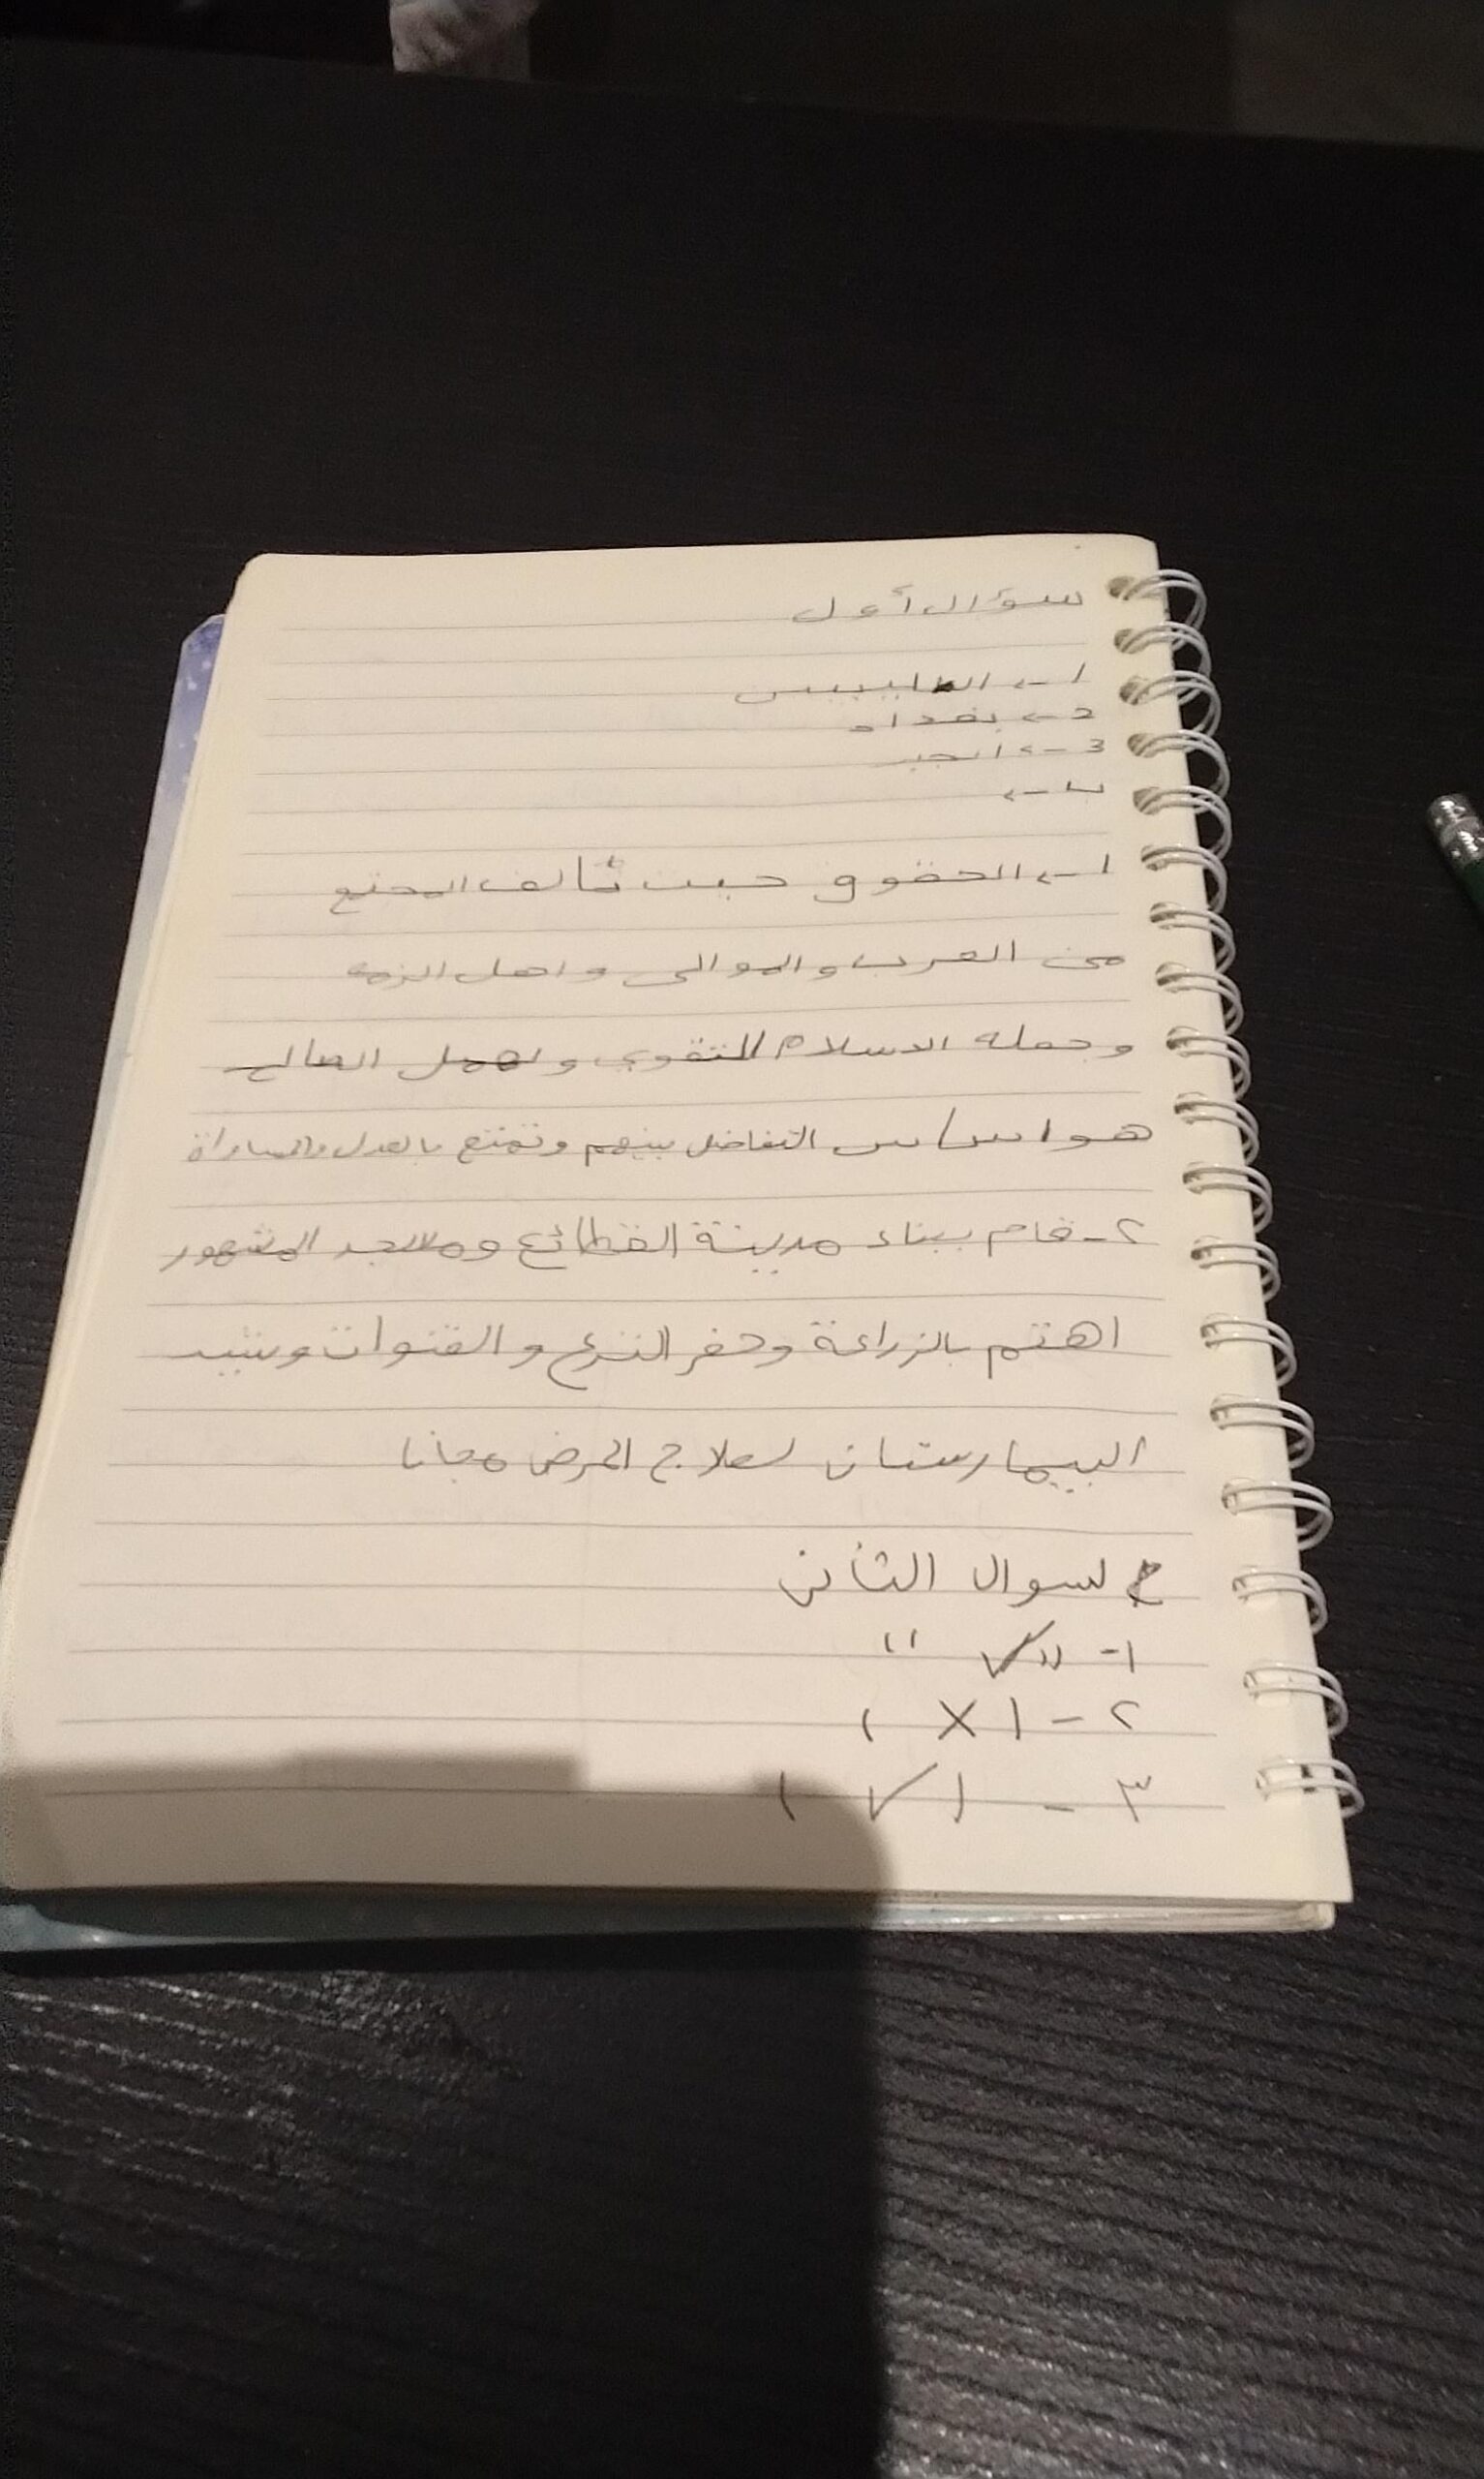 سؤال أول
1-> الطابيبس
2-> بغداد
3-> الجبر
ب->
1-> الحقوق حيث تألف المجتمع
من العرب والموالى واهل الذمه
وجعله الاسلام التقوي ولعمل الصالح
هو اساس التفاضل بينهم وتمتع بالعدل والمساواة
٢- قام ببناء مدينة القطائع ومسجد المشهور
اهتم بالزراعة وحفر الترع والقنوات وشيد
البيمارستان لعلاج المرضى مجانا
لسوال الثانى
١- " ✓ "
٢ - ( X )
٣ - ( ✓ )